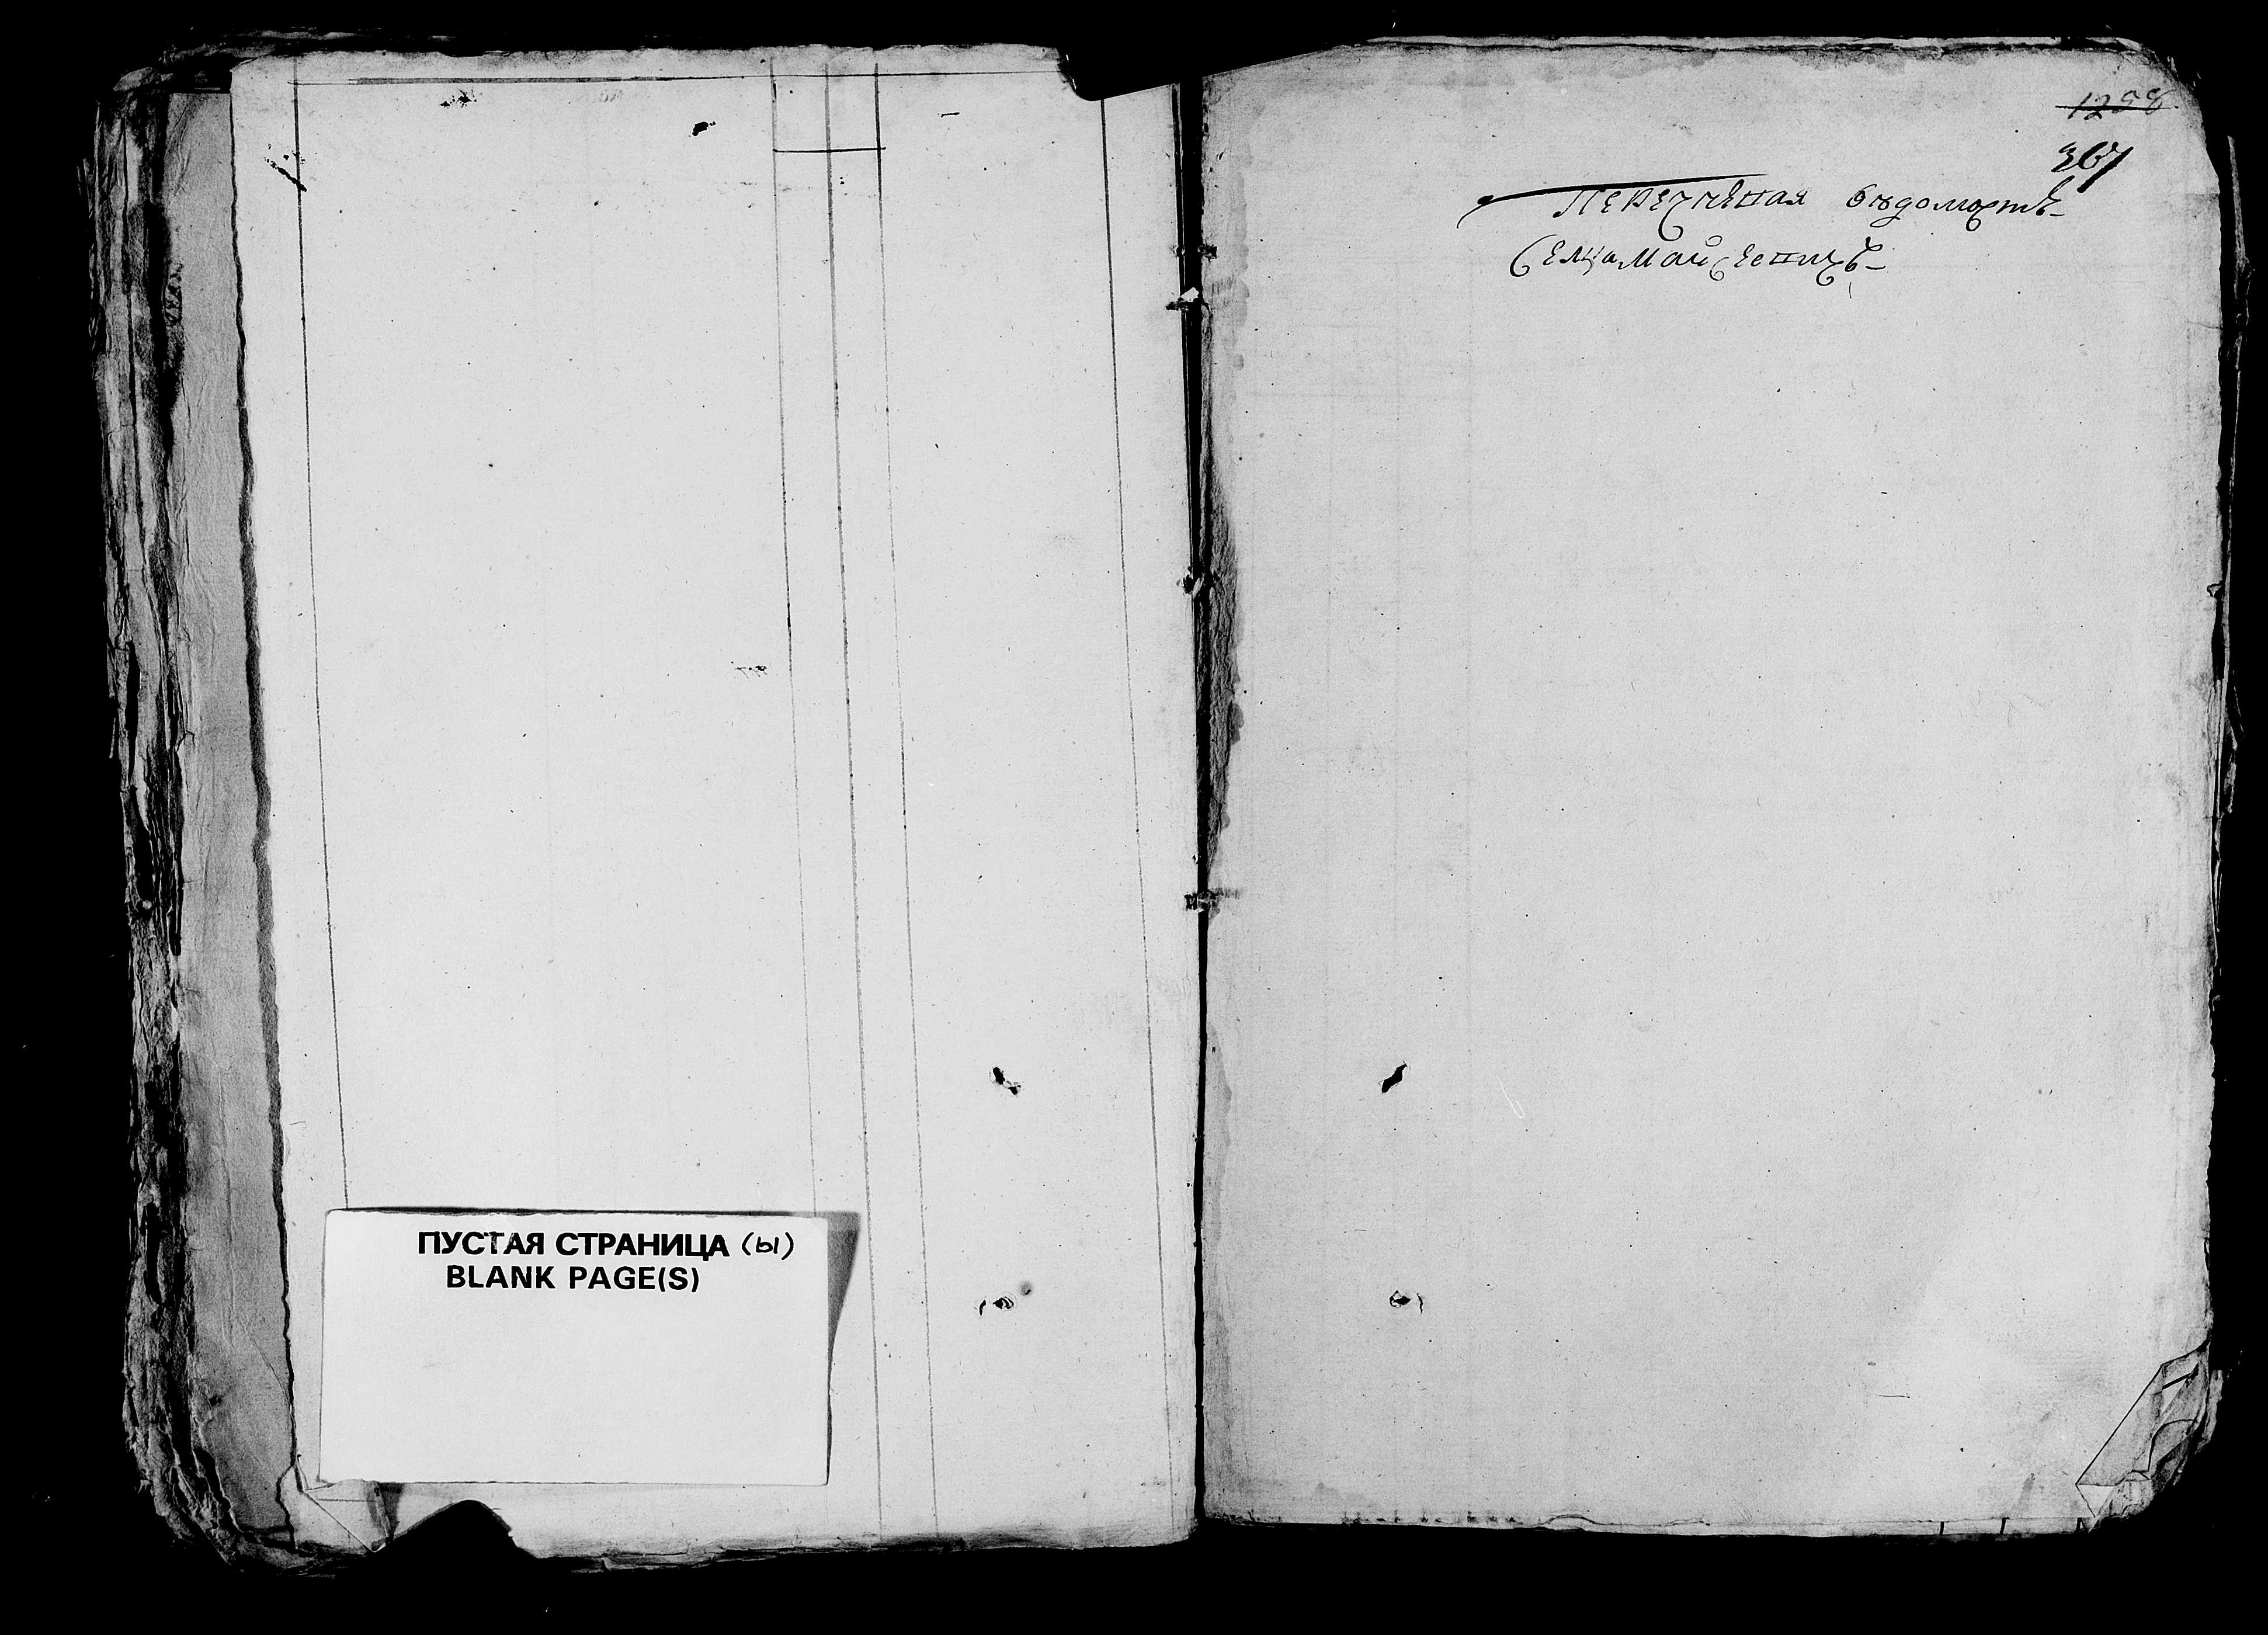 ПУСТАЯ СТРАНИЦА (ы)
BLANK PAGE(S)
1258
367
Перечневая ведомость
Селца Маисеевихъ